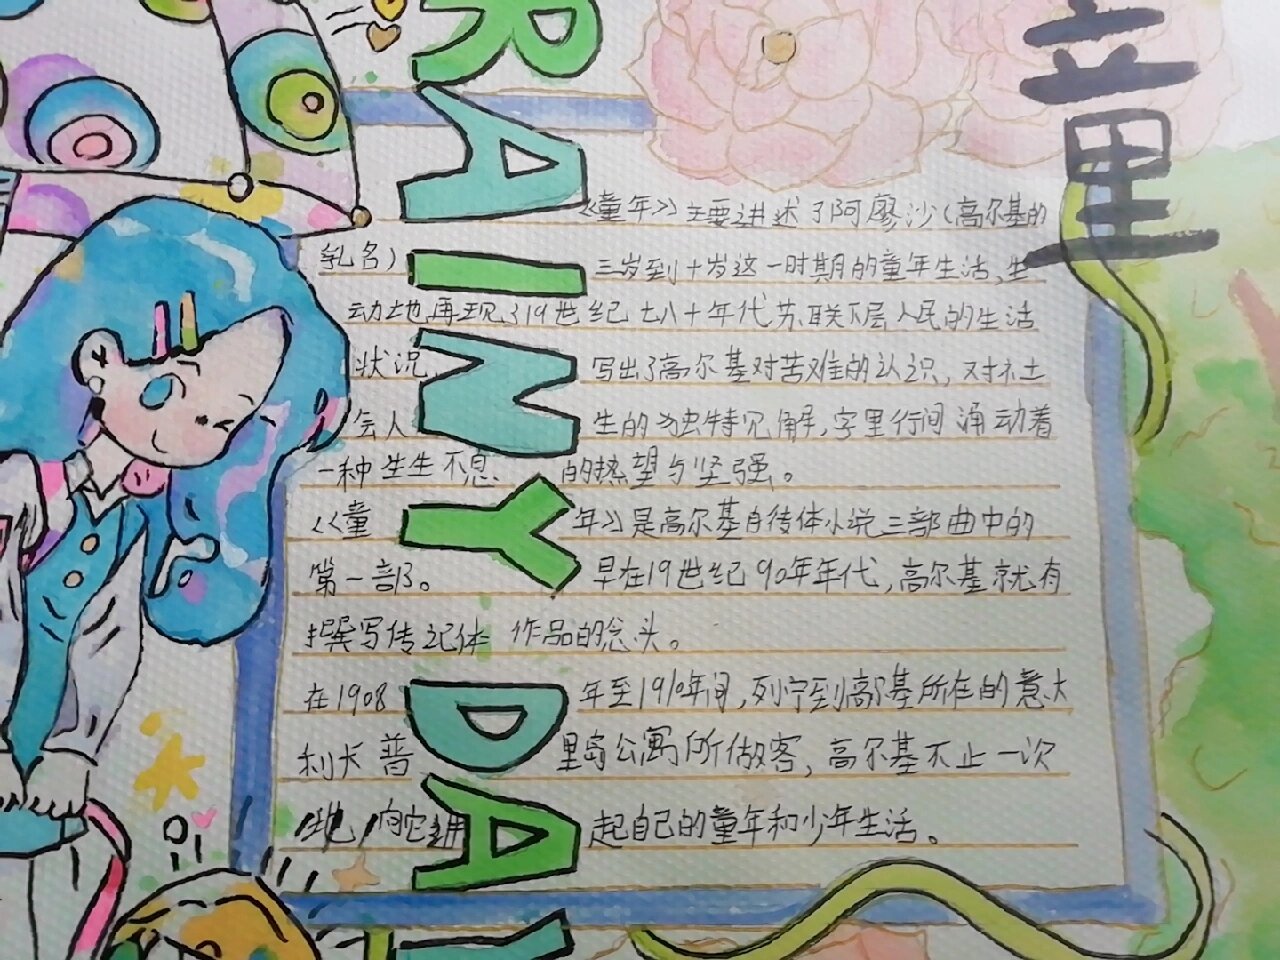 RAINY DAY
童
《童年》主要讲述了阿廖沙(高尔基的
乳名) 三岁到十岁这一时期的童年生活,生
动地再现了19世纪七八十年代苏联下层人民的生活
状况 写出了高尔基对苦难的认识,对社
会人 生的独特见解,字里行间涌动着
一种生生不息 的热望与坚强。
《童 年》是高尔基自传体小说三部曲中的
第一部。 早在19世纪90年年代,高尔基就有
撰写传记体 作品的念头。
在1908 年至1910年间,列宁到高尔基所在的意大
利长普 里岛公寓所做客,高尔基不止一次
地向它 起自己的童年和少年生活。